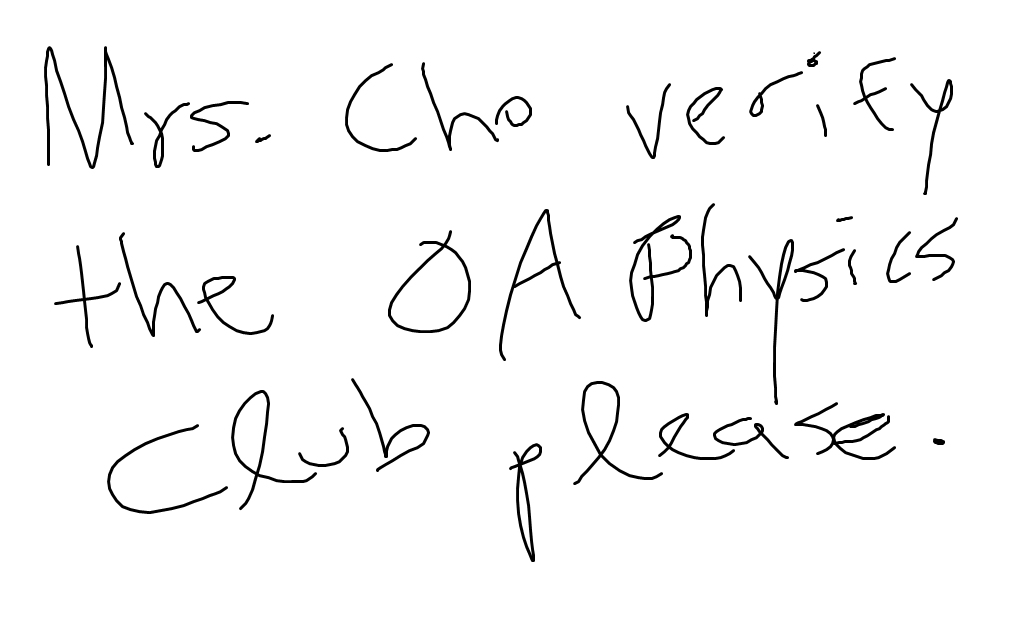 Mrs. Cho verify
the OA Physics
Club please.